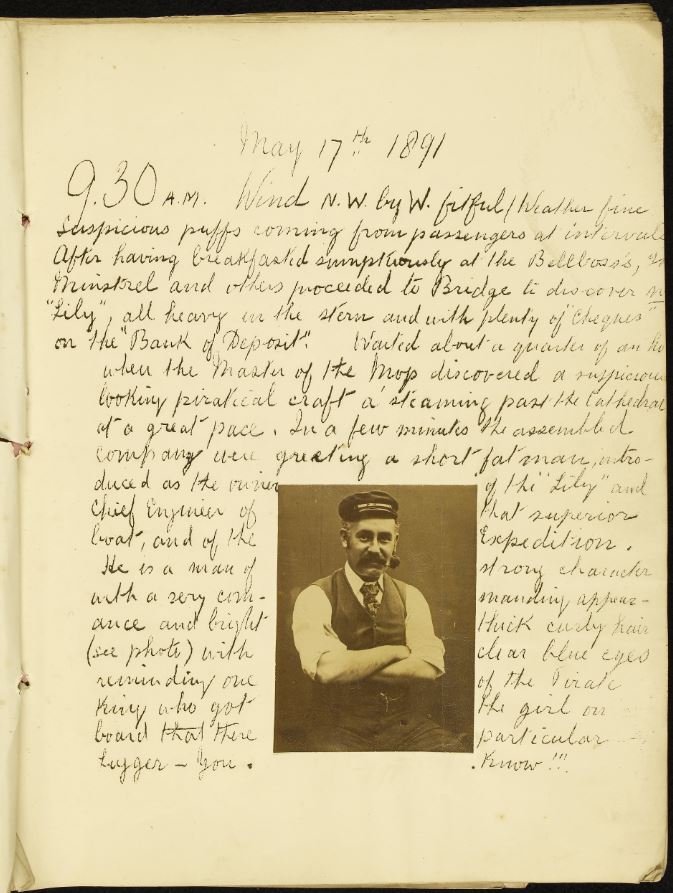 May 17th 1891
9.30 A.M. Wind N.W. by W. fitful / Weather fine
Suspicious puffs coming from passengers at intervals
After having breakfasted sumptuously at the Bellboss's,
Minstrel and others proceeded to Bridge to discover
"Lily", all heavy in the stern and with plenty of "Cheques"
on the "Bank of Deposit". Waited about a quarter of an
when the Master of the Mop discovered a suspicious
looking piratical craft a' steaming past the Cathedral
at a great pace. In a few minutes the assembled
company were greeting a short fat man, intro-
duced as the owner of the "Lily" and
Chief Engineer of that superior
boat, and of the Expedition.
He is a man of strong character
with a very com- manding appear-
ance and bright thick curly hair
(see photo) with clear blue eyes
reminding one of the Pirate
King who got the girl on
board that there particular
lugger – You. . Know !!!